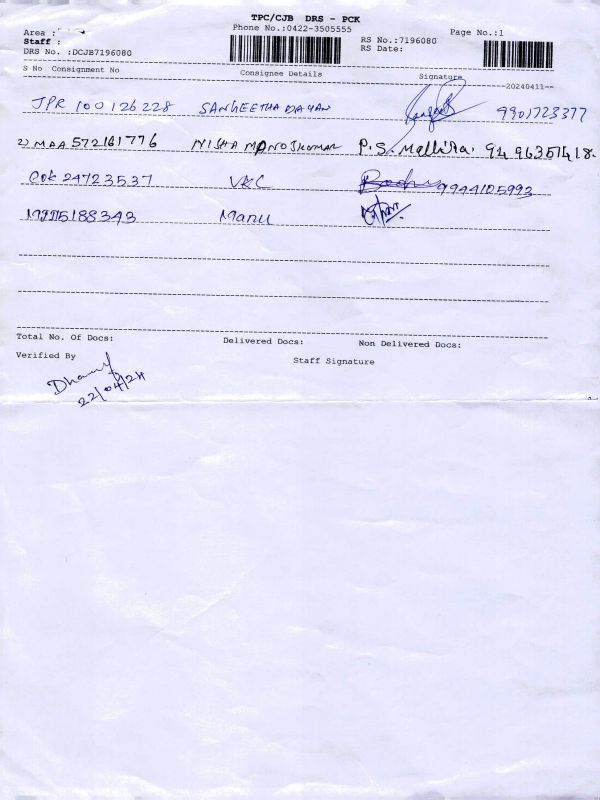 TPC/CJB DRS - PCK
Phone No.:0422-3505555
Area :
Staff :
DRS No. :DCJB7196080
RS No.:7196080
RS Date:
Page No.:1
S No Consignment No Consignee Details Signature
--20240411--
JPR 100126228 SANGEETHA DAYAN 9901723377
2) MAA 572161776 NISHA MANOJKUMAR P.S. Mallika. 9496351418.
COK 24723537 VKC 9944105993
5188343 Manu
Total No. Of Docs: Delivered Docs: Non Delivered Docs:
Verified By Staff Signature
22/04/24